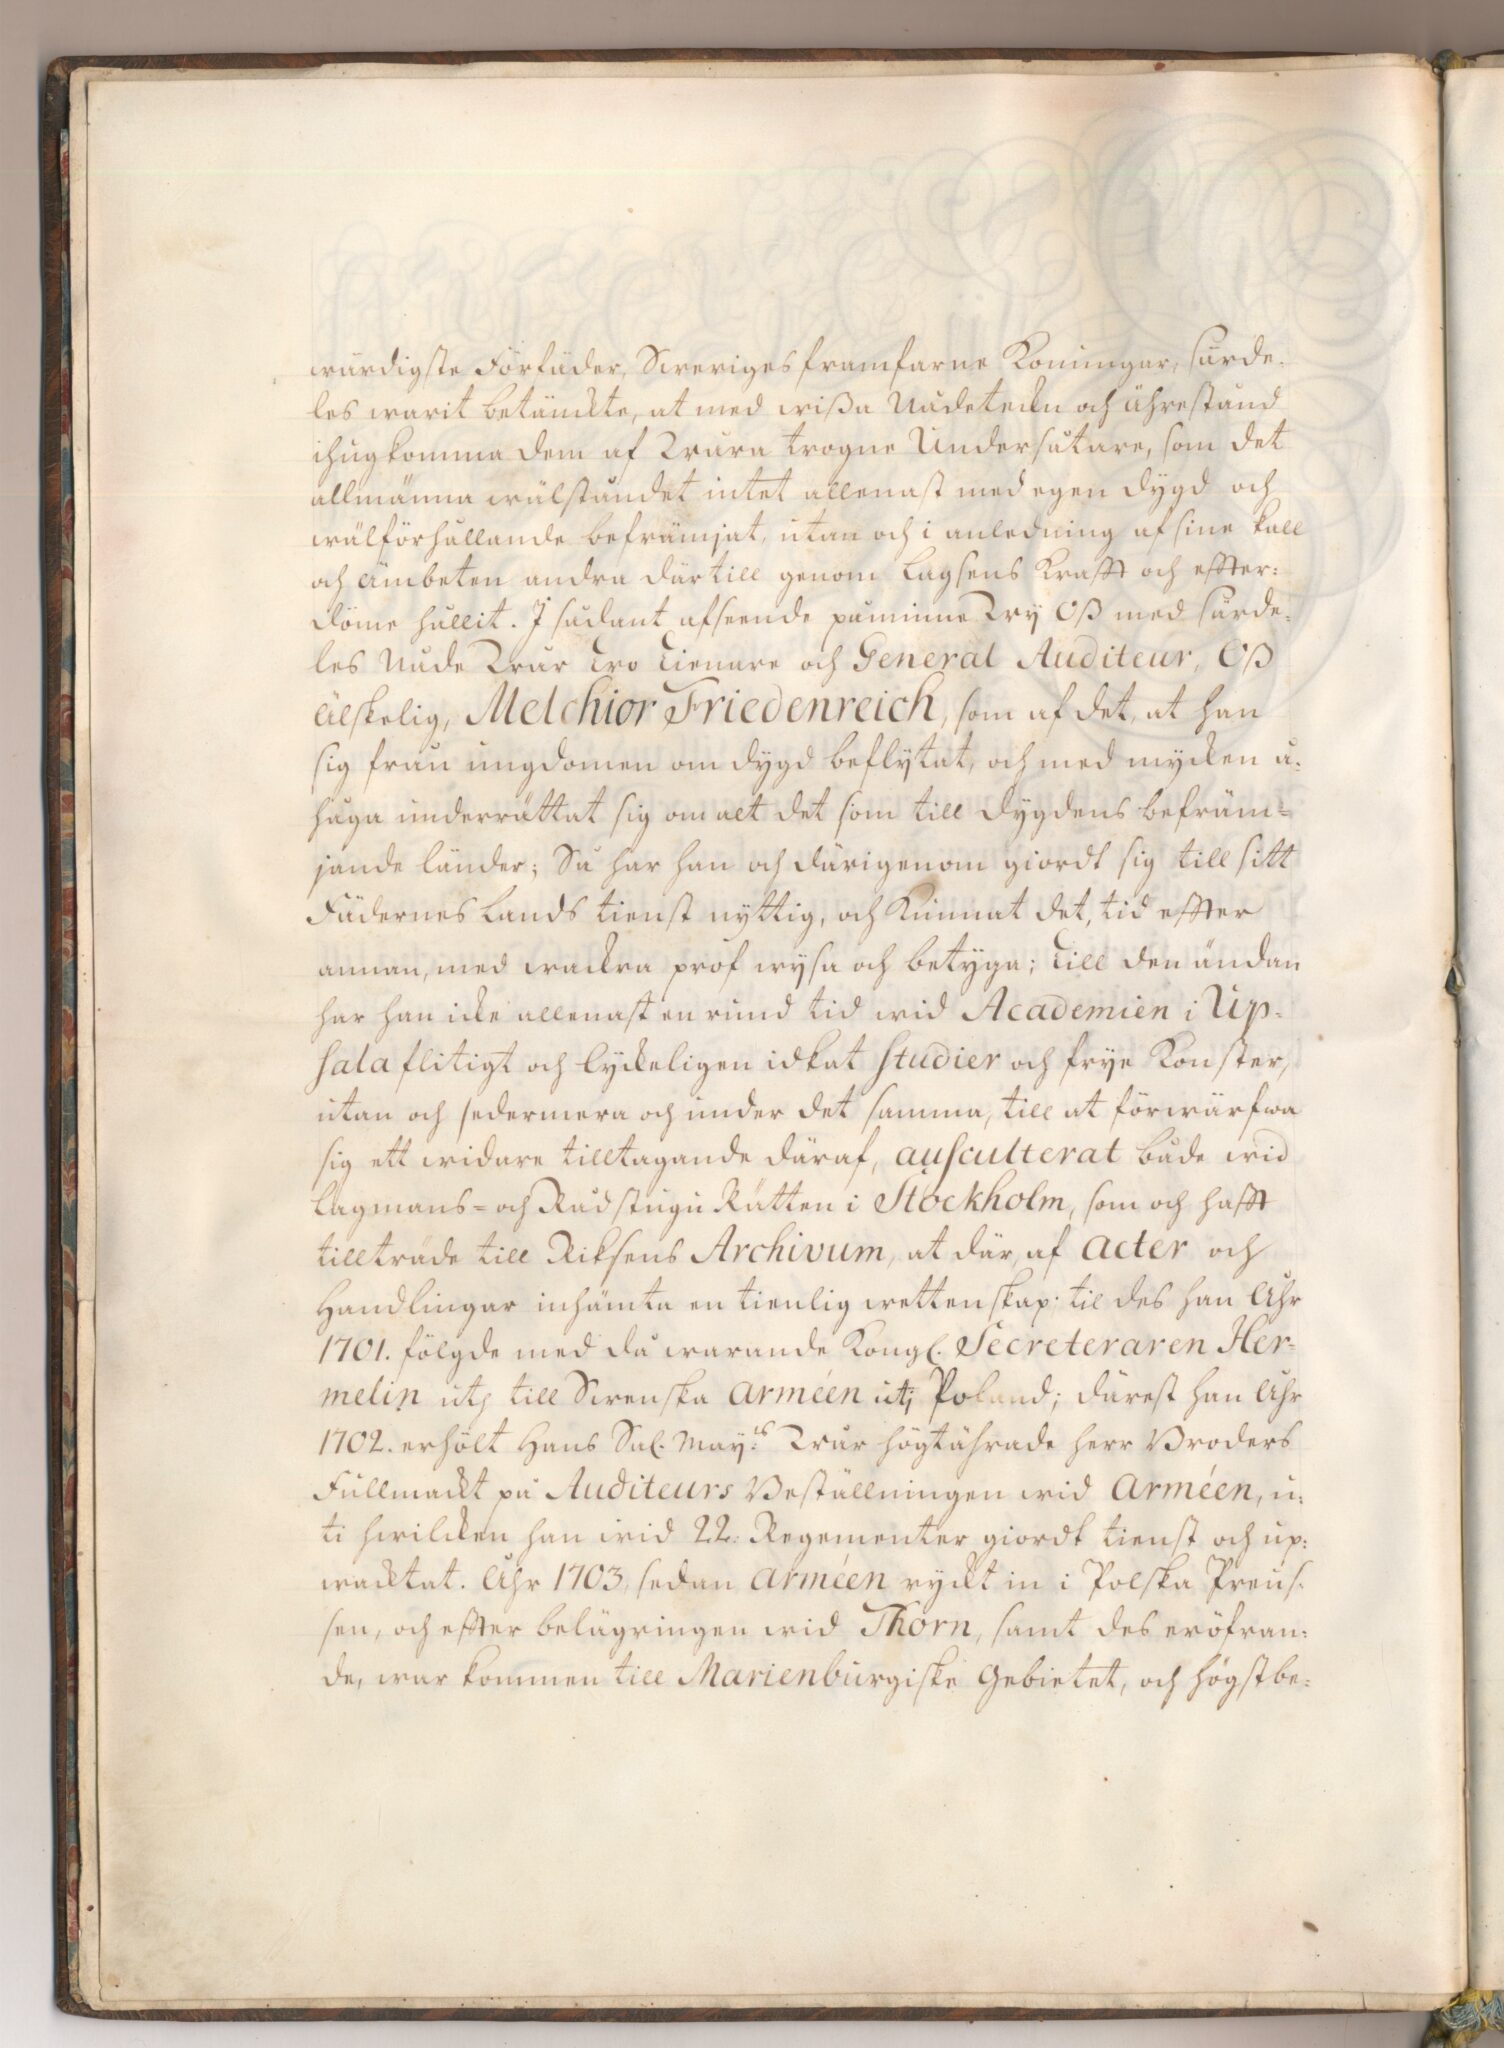 wurdigste Förfäder, Sweriges framfarne Koningar, särde-
les warit betänckte, at med wißa Nådetekn och ährestånd
ihugkomma dem af Wåra trogne Undersåtare, som det
allmänna wälståndet intet allenast med egen dygd och
wälförhållande befrämjat, utan och i anledning af sine kall
och ämbeten andra därtill genom Lagsens Krafft och effter-
döme hållit. I sådant afseende påminne Wy Oß med särde-
les Nåde Wår Tro Tienare och General Auditeur, Oß
älskelig, Melchior Friedenreich, som af det, at han
sig från ungdomen om dygd beflytat, och med mycken å-
håga underrättat sig om alt det som till dygdens befräm-
jande länder; Så har han och därigenom giordt sig till sitt
Fädernes Lands tienst nyttig, och Kunnat det, tid effter
annan, med wackra prof wysa och betyga; Till den ändan
har han icke allenast en rund tid wid Academien i Up-
sala flitigt och lyckeligen idkat studier och frye Konster,
utan och sedermera och under det samma, till at förwärfwa
sig ett widare tilltagande däraf, ausculterat både wid
Lagmans- och Rådstugu Rätten i Stockholm, som och hafft
tillträde till Riksens Archivum, at där af acter och
Handlingar inhämta en tienlig wettenskap; til des han Åhr
1701. fölgde med då warande Kongl. Secreteraren Her-
melin uth till Swenska arméen uti Poland; därest han Åhr
1702. erhölt Hans Sal. May:ts Wår högtährade herr Broders
Fullmackt på Auditeurs Beställningen wid arméen, u-
ti hwilcken han wid 22. Regementer giordt tienst och up-
wacktat. Åhr 1703, sedan arméen ryckt in i Polska Preus-
sen, och effter belägringen wid Thorn, samt des eröfran-
de, war kommen till Marienburgiske Gebietet, och högstbe-